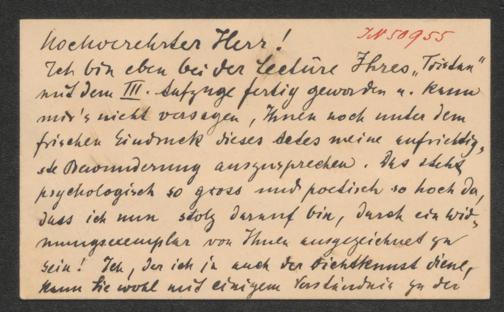 Hochverehrter Herr!
IN 50955
Ich bin eben bei der Lectüre Ihres „Tristan"
mit dem III. Aufzuge fertig geworden u. kann
mir's nicht versagen, Ihnen noch unter dem
frischen Eindruck dieses Actes meine aufrichtig-
ste Bewunderung auszusprechen. Das steht
psychologisch so gross und poetisch so hoch da,
dass ich nun stolz darauf bin, durch ein Wid-
mungsexemplar von Ihnen ausgezeichnet zu
sein! Ich, der ich ja auch der Dichtkunst diene,
kann Sie wohl mit einigem Verständnis zu der